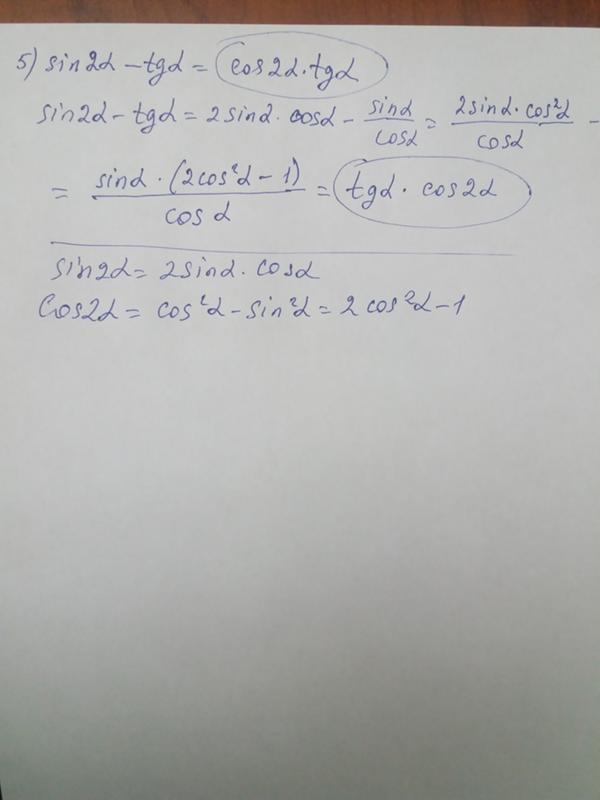 5) sin2α – tgα = cos2α · tgα
sin2α – tgα = 2sinα · cosα – sinα/cosα = 2sinα · cos²α/cosα –
= sinα · (2cos²α – 1)/cosα = tgα · cos2α
sin2α = 2sinα · cosα
Cos2α = cos²α – sin²α = 2cos²α – 1